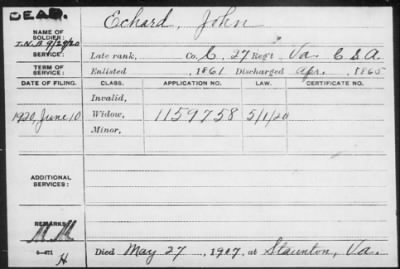 DEAD.
NAME OF SOLDIER: Echard, John
I.N.B. 9/29/20
SERVICE: Late rank, Co. C, 27 Regt Va C.S.A.
TERM OF SERVICE: Enlisted , 1861 Discharged Apr. , 1865
DATE OF FILING. CLASS. APPLICATION NO. LAW. CERTIFICATE NO.
Invalid,
1920, June 10 Widow, 1159758 5/1/20
Minor,
ADDITIONAL SERVICES:
REMARKS:
Died May 27 , 1907, at Staunton, Va.